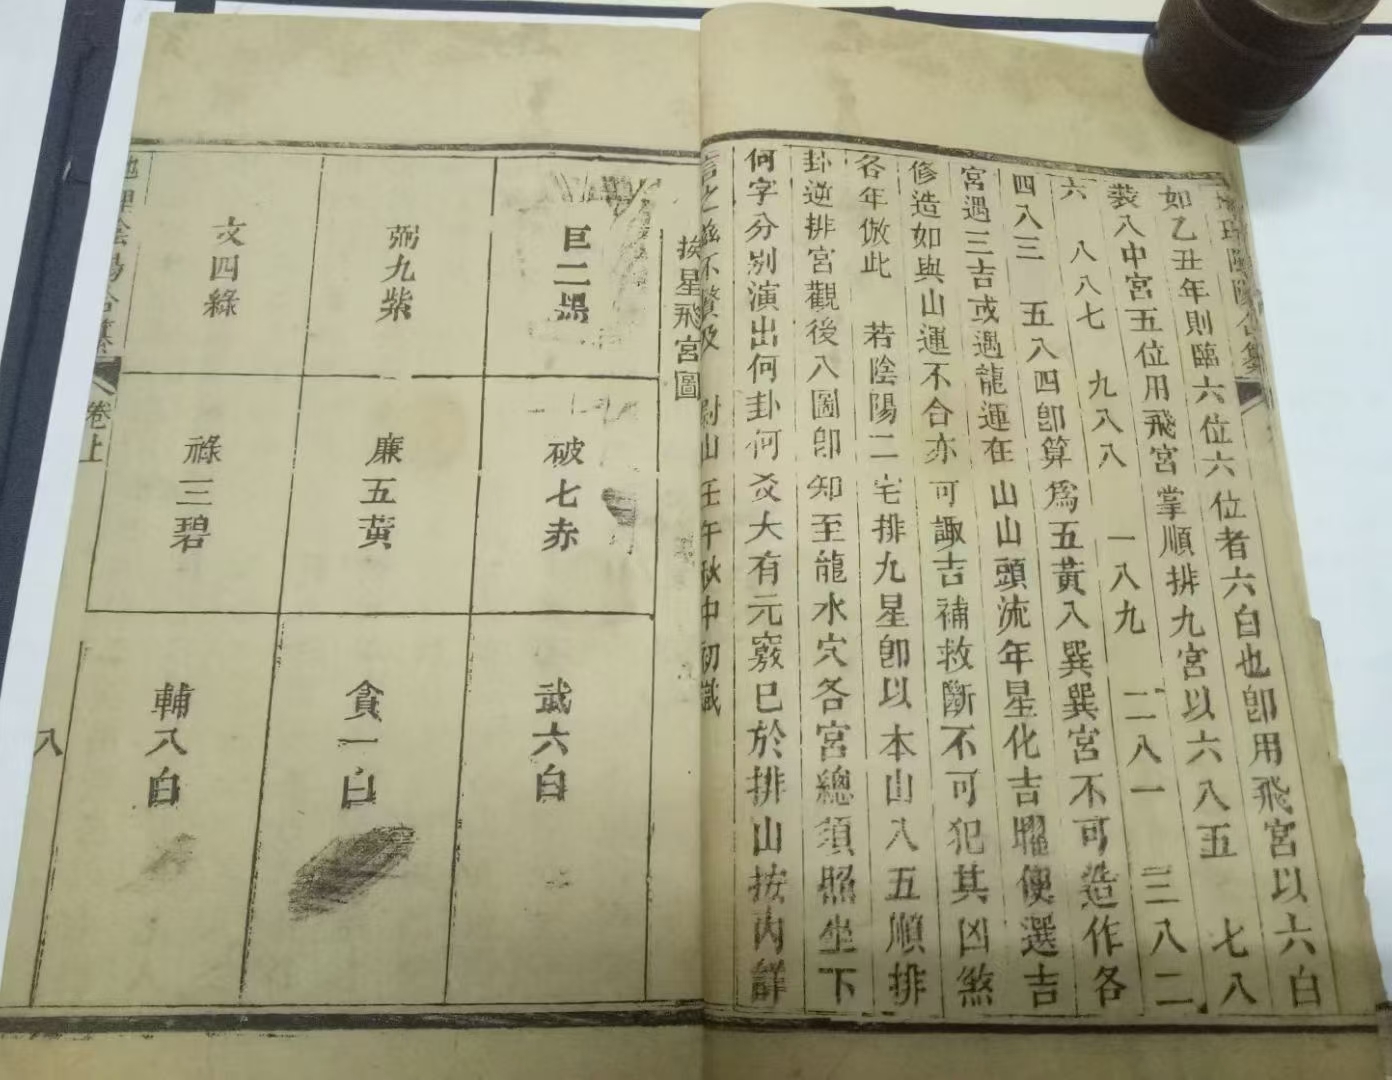 地理陰陽合纂
如乙丑年則臨六位六位者六白也卽用飛宮以六白
裝入中宮五位用飛宮掌順排九宮以六入五　七入
六　八入七　九入八　一入九　二入一　三入二
四入三　五入四卽算爲五黃入巽巽宮不可造作各
宮遇三吉或遇龍運在山山頭流年星化吉曜便選吉
修造如與山運不合亦可諏吉補救斷不可犯其凶煞
各年倣此　若陰陽二宅排九星卽以本山入五順排
卦逆排宮觀後八圖卽知至龍水穴各宮總須照坐下
何字分別演出何卦何爻大有元竅已於排山按內詳
言之茲不贅及　尉山壬午秋中初識
挨星飛宮圖
巨二黑
破七赤
武六白
弼九紫
廉五黃
貪一白
文四綠
祿三碧
輔八白
地理陰陽合纂　卷上　八